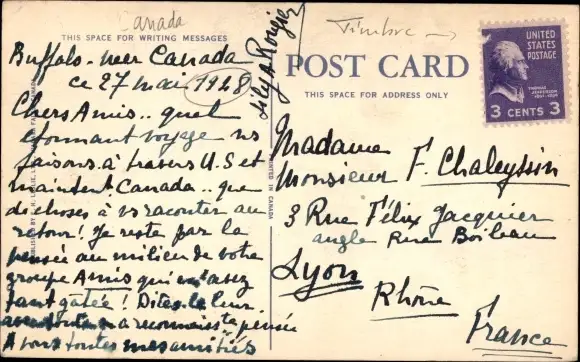 Canada
THIS SPACE FOR WRITING MESSAGES
Buffalo - near Canada
ce 27 mai 1948
Chers Amis.. quel
étonnant voyage ns
faisons à travers U.S et
maintent Canada.. que
de choses à vs raconter au
retour! Je reste par la
pensée au milieu de votre
groupe Amis qui m'avez
tant gâtée! Dites le leur
ma reconnaisste pensée
A vous toutes mes amitiés
PRINTED IN CANADA
Timbre →
POST CARD
THIS SPACE FOR ADDRESS ONLY
UNITED
STATES
POSTAGE
THOMAS
JEFFERSON
3 CENTS 3
Madame
Monsieur F. Chaleyssin
3 Rue Félix Jacquier
angle Rue Boileau
Lyon
Rhône
France